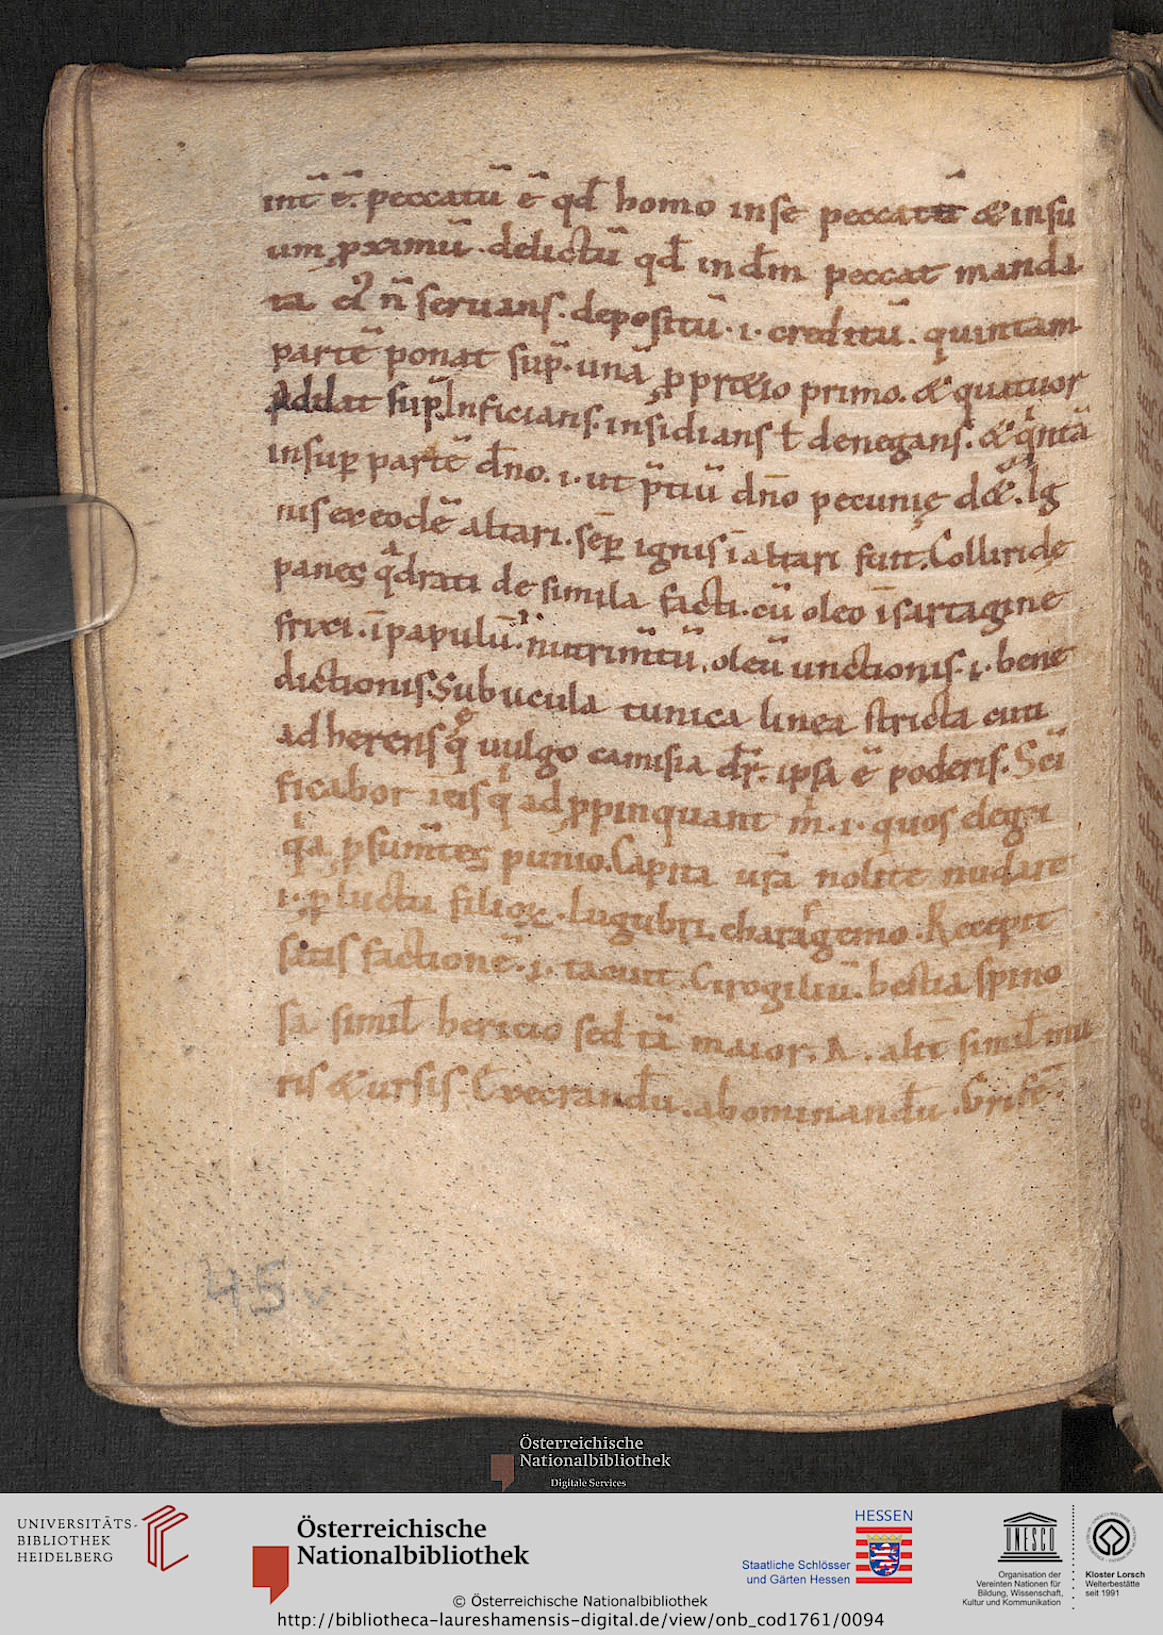 int̄ ē. peccatū ē qd̄ homo inse peccatū & insu
um ꝓximū. delictū qd̄ indm̄ peccat manda
ta ei᷒ n̄ seruans. depositū. i. creditū. quintam
partē ponat sup̄. unā ꝓ pretio primo. & quatuor
Addat sup̄ Inficians. insidians ł denegans. & qⁱntā
insuꝑ partē dn̄o. i. ut p̄tiū dn̄o pecunię
nis ex eodē altari. sēꝑ ignis ī altari Colliridę
panes qᵃdrati de simila facti. cū oleo ī sartagine
frixi. nutrim̄tū. oleū unctionis. i. bene
dictionis. Subucula tunica linea stricta cuti
adherens vulgo camisia dr̄. ipsa ē poderis. Sc̄i
ficabor ī eis qⁱ adꝓpinquant mⁱ. i. quos elegi
qⁱa p̄sum̄tes punio. Capita ur̄a nolite nudare
i. ꝑ luctū filioꝝ. lugubri. Recepit
satis factionē. i. tacuit. Cirogiliū. bestia spino
sa simil̄ hericio sed tā maior. A. alit̄ simil̄ mu
ris & ursis. Execrandū. abominandū. Grifē.
45 v
Österreichische
Nationalbibliothek
Digitale Services
UNIVERSITÄTS-
BIBLIOTHEK
HEIDELBERG
Österreichische
Nationalbibliothek
HESSEN
Staatliche Schlösser
und Gärten Hessen
UNESCO
Organisation der
Vereinten Nationen für
Bildung, Wissenschaft,
Kultur und Kommunikation
Kloster Lorsch
Welterbestätte
seit 1991
© Österreichische Nationalbibliothek
http://bibliotheca-laureshamensis-digital.de/view/onb_cod1761/0094